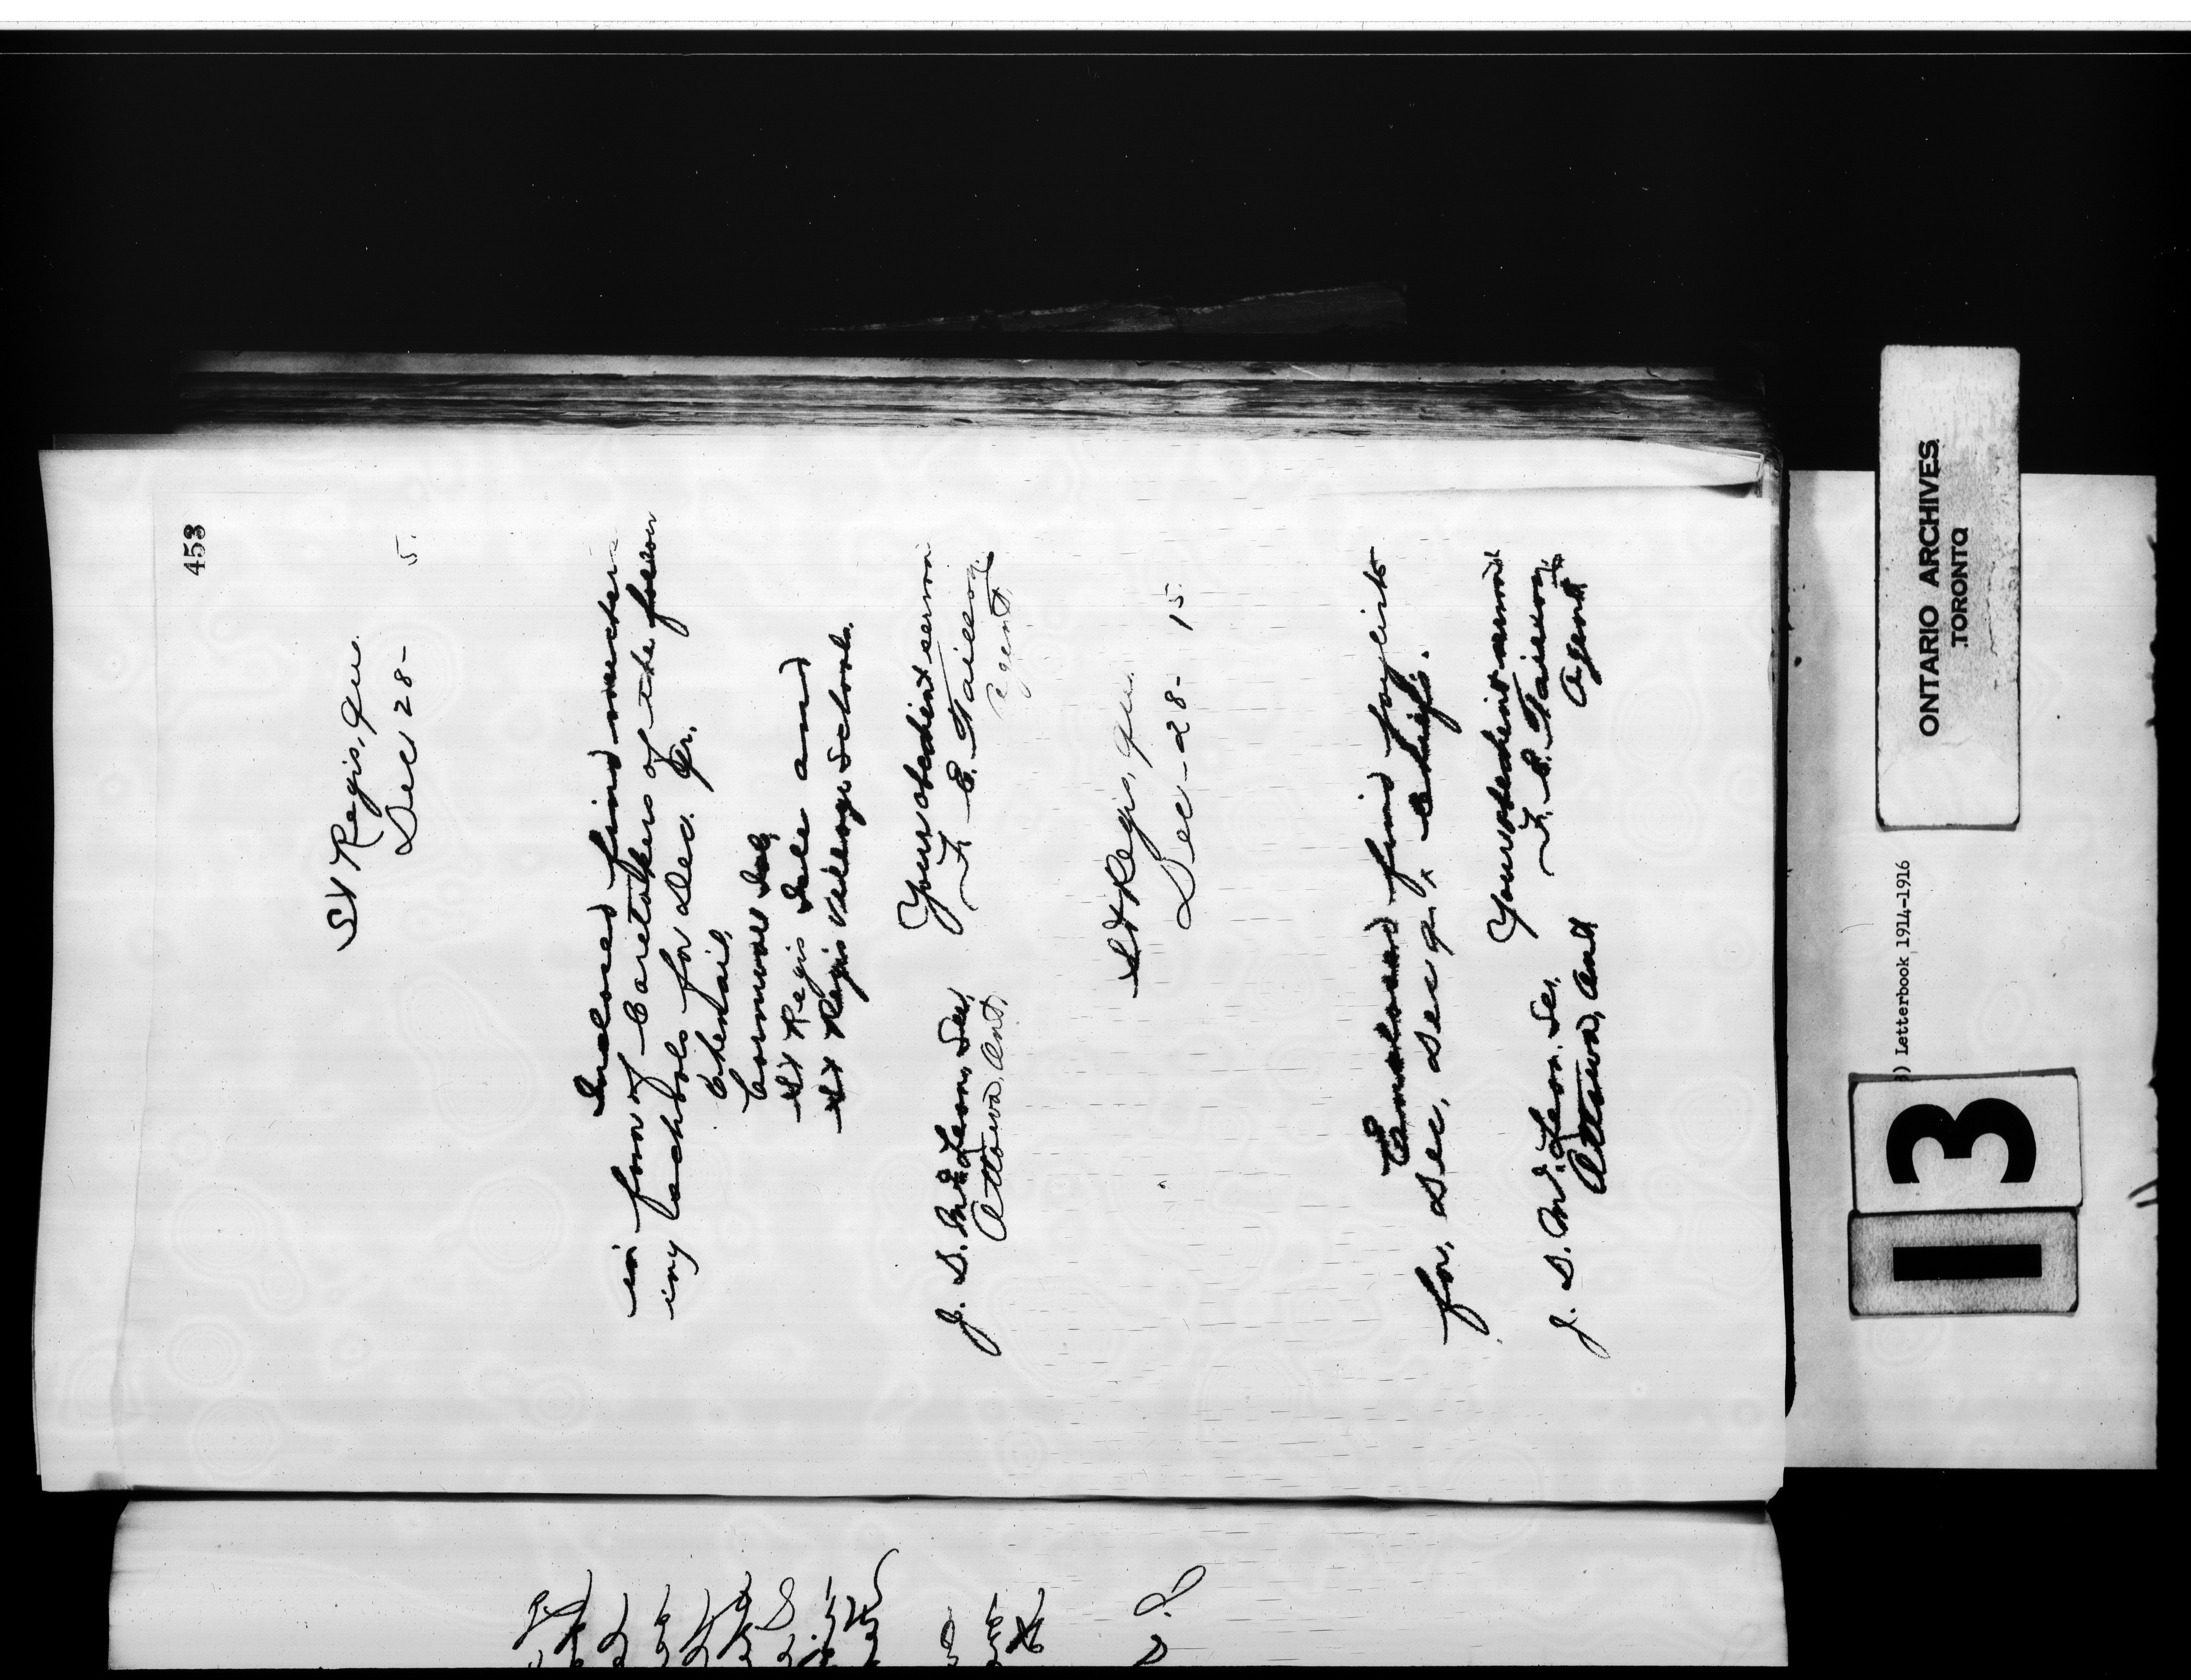 453
St Regis, Que.
Dec 28- 5.
Inclosed find vouchers
in favor of Caretakers of the follow
ing schools for Dec. Qr.
Chenail,
Cornwall Isld,
St Regis Isle and
St Regis Village Schools.
Your obedient servan
F. E. Taillon,
Agent.
J. D. McLean, Sec,
Ottawa, Ont.
St Regis, Que.
Dec - 28- 15.
Enclosed find paylists
for, Dec, Dec qr, Chiefs.
Your obedient servant
F. E. Taillon,
Agent
J. D. McLean, Sec,
Ottawa, Ont
ONTARIO ARCHIVES
TORONTO
) Letterbook 1914-1916
13